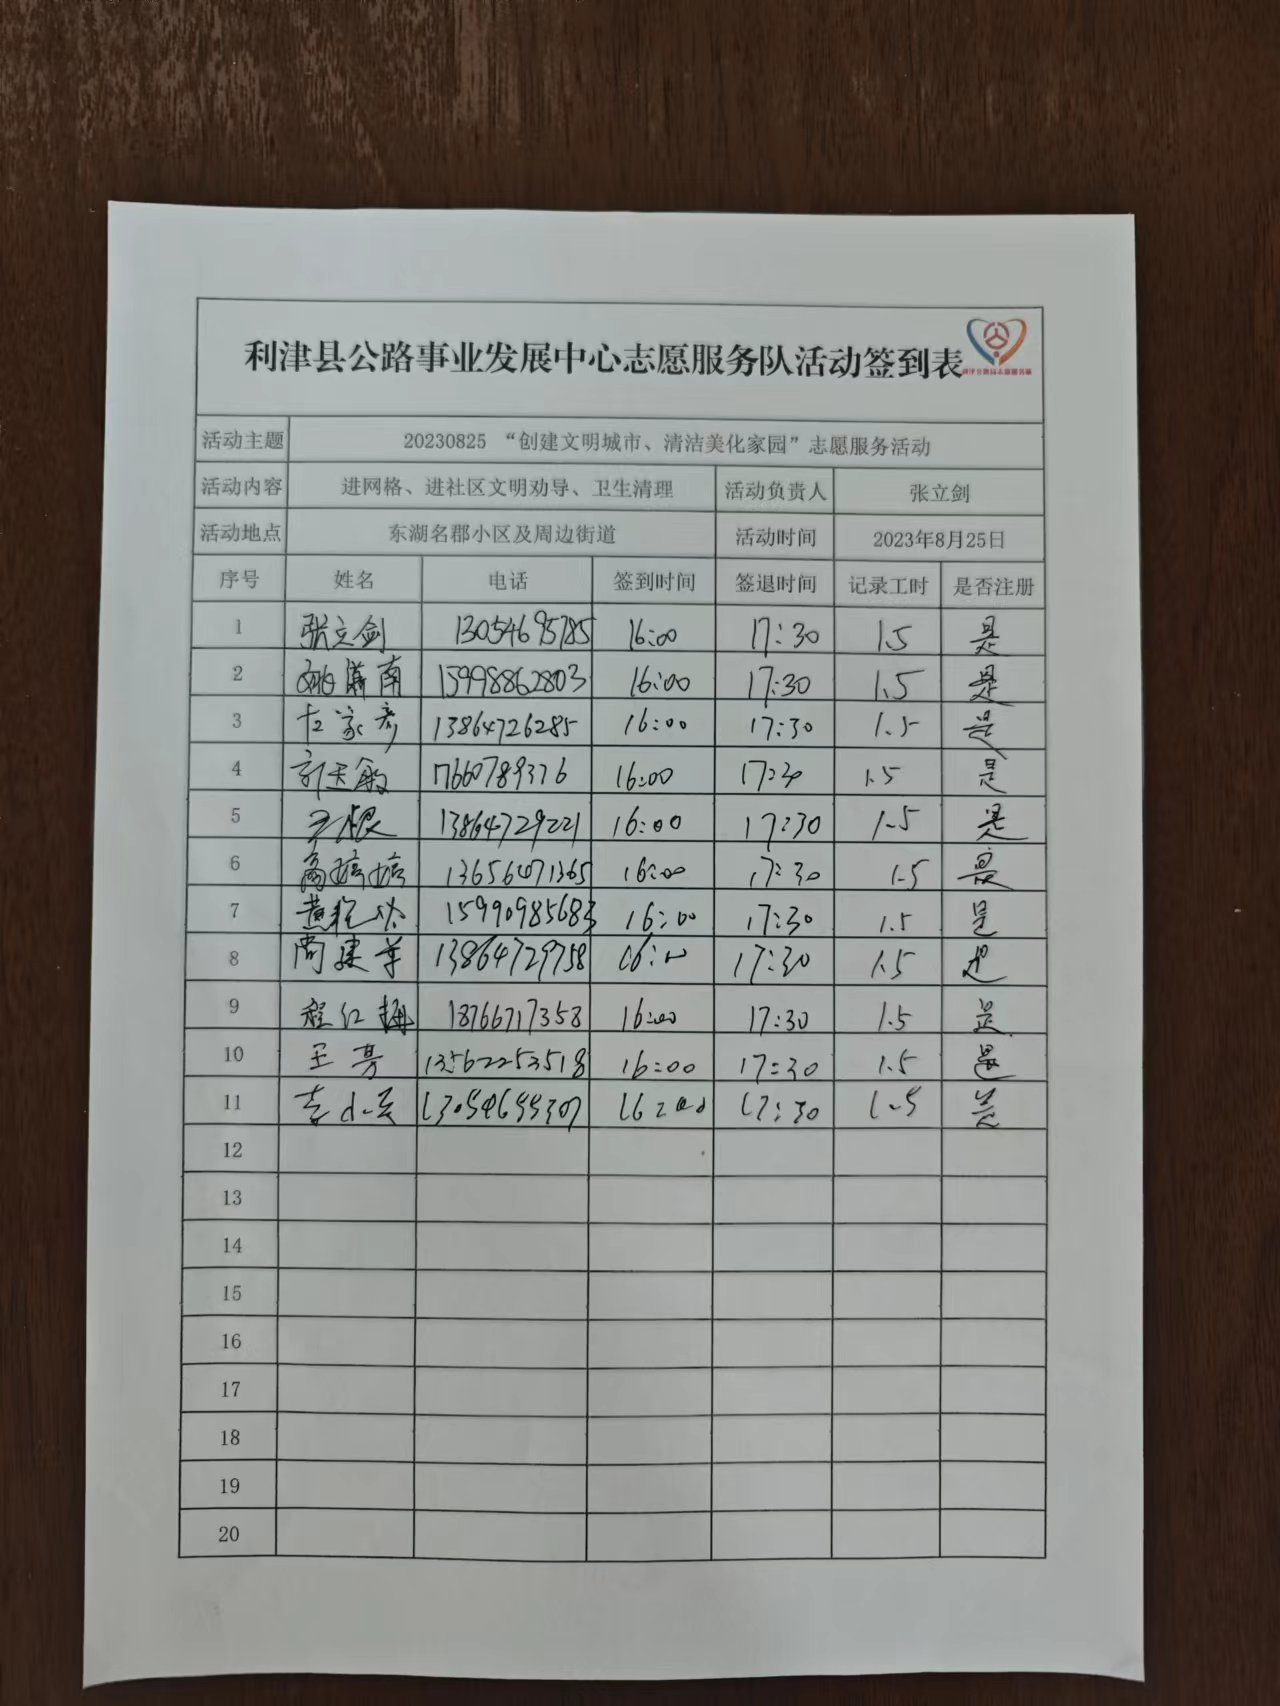 利津县公路事业发展中心志愿服务队活动签到表
活动主题 20230825 “创建文明城市、清洁美化家园”志愿服务活动
活动内容 进网格、进社区文明劝导、卫生清理 活动负责人 张立剑
活动地点 东湖名郡小区及周边街道 活动时间 2023年8月25日
序号 姓名 电话 签到时间 签退时间 记录工时 是否注册
1 张立剑 13054695785 16:00 17:30 1.5 是
2 13998862803 16:00 17:30 1.5 是
3 13864726285 16:00 17:30 1.5 是
4 16:00 17:30 1.5 是
5 13864729221 16:00 17:30 1.5 是
6 高婷婷 13656471365 16:00 17:30 1.5 是
7 15990985683 16:00 17:30 1.5 是
8 尚建华 13864729758 16:00 17:30 1.5 是
9 程红梅 18766717358 16:00 17:30 1.5 是
10 王芳 13562253518 16:00 17:30 1.5 是
11 16:00 17:30 1.5 是
12
13
14
15
16
17
18
19
20